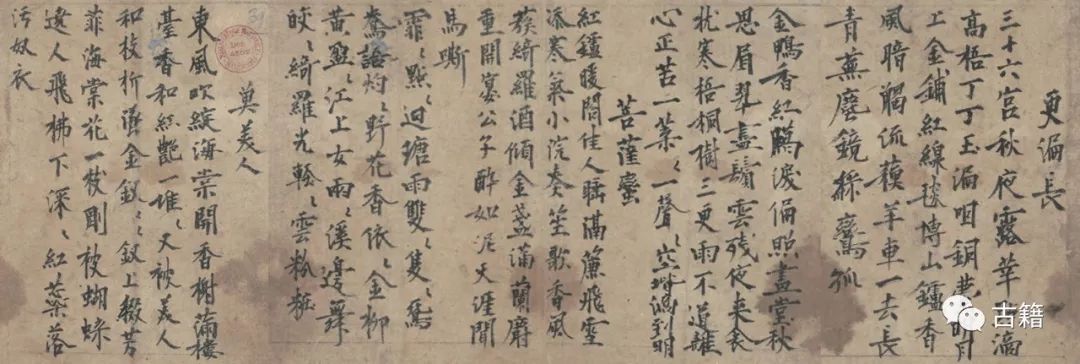 更漏長
三十六宮秋夜露華滴
高梧丁丁玉漏咽銅
上金鋪紅線毯博山鑪香
風暗觸流蘇羊車一去長
青蕪塵鏡綵鸞孤
金鴨香紅蠟淚偏照畫堂秋
思眉翠盡鬢雲殘夜來衾
枕寒梧桐樹三更雨不道離
心正苦一葉〻一聲〻空堦滴到明
菩薩蠻
紅鑪暖閣佳人睡滿簾飛雪
添寒氣小院奏笙歌香風
簇綺羅酒傾金盞滿蘭麝
重開宴公子醉如泥天涯聞
馬嘶
霏〻點〻迴塘雨雙〻隻〻鴛
鴦語灼〻野花香依〻金柳
黃盈〻江上女兩〻溪邊舞
皎〻綺羅光輕〻雲粉粧
莫美人
東風吹綻海棠開香榭滿樓
臺香和紅艷一堆〻又被美人
和枝折墜金釵〻釵上綴芳
菲海棠花一枝剛被蝴蝶
遶人飛拂下深〻紅蘂落
污奴衣
古籍